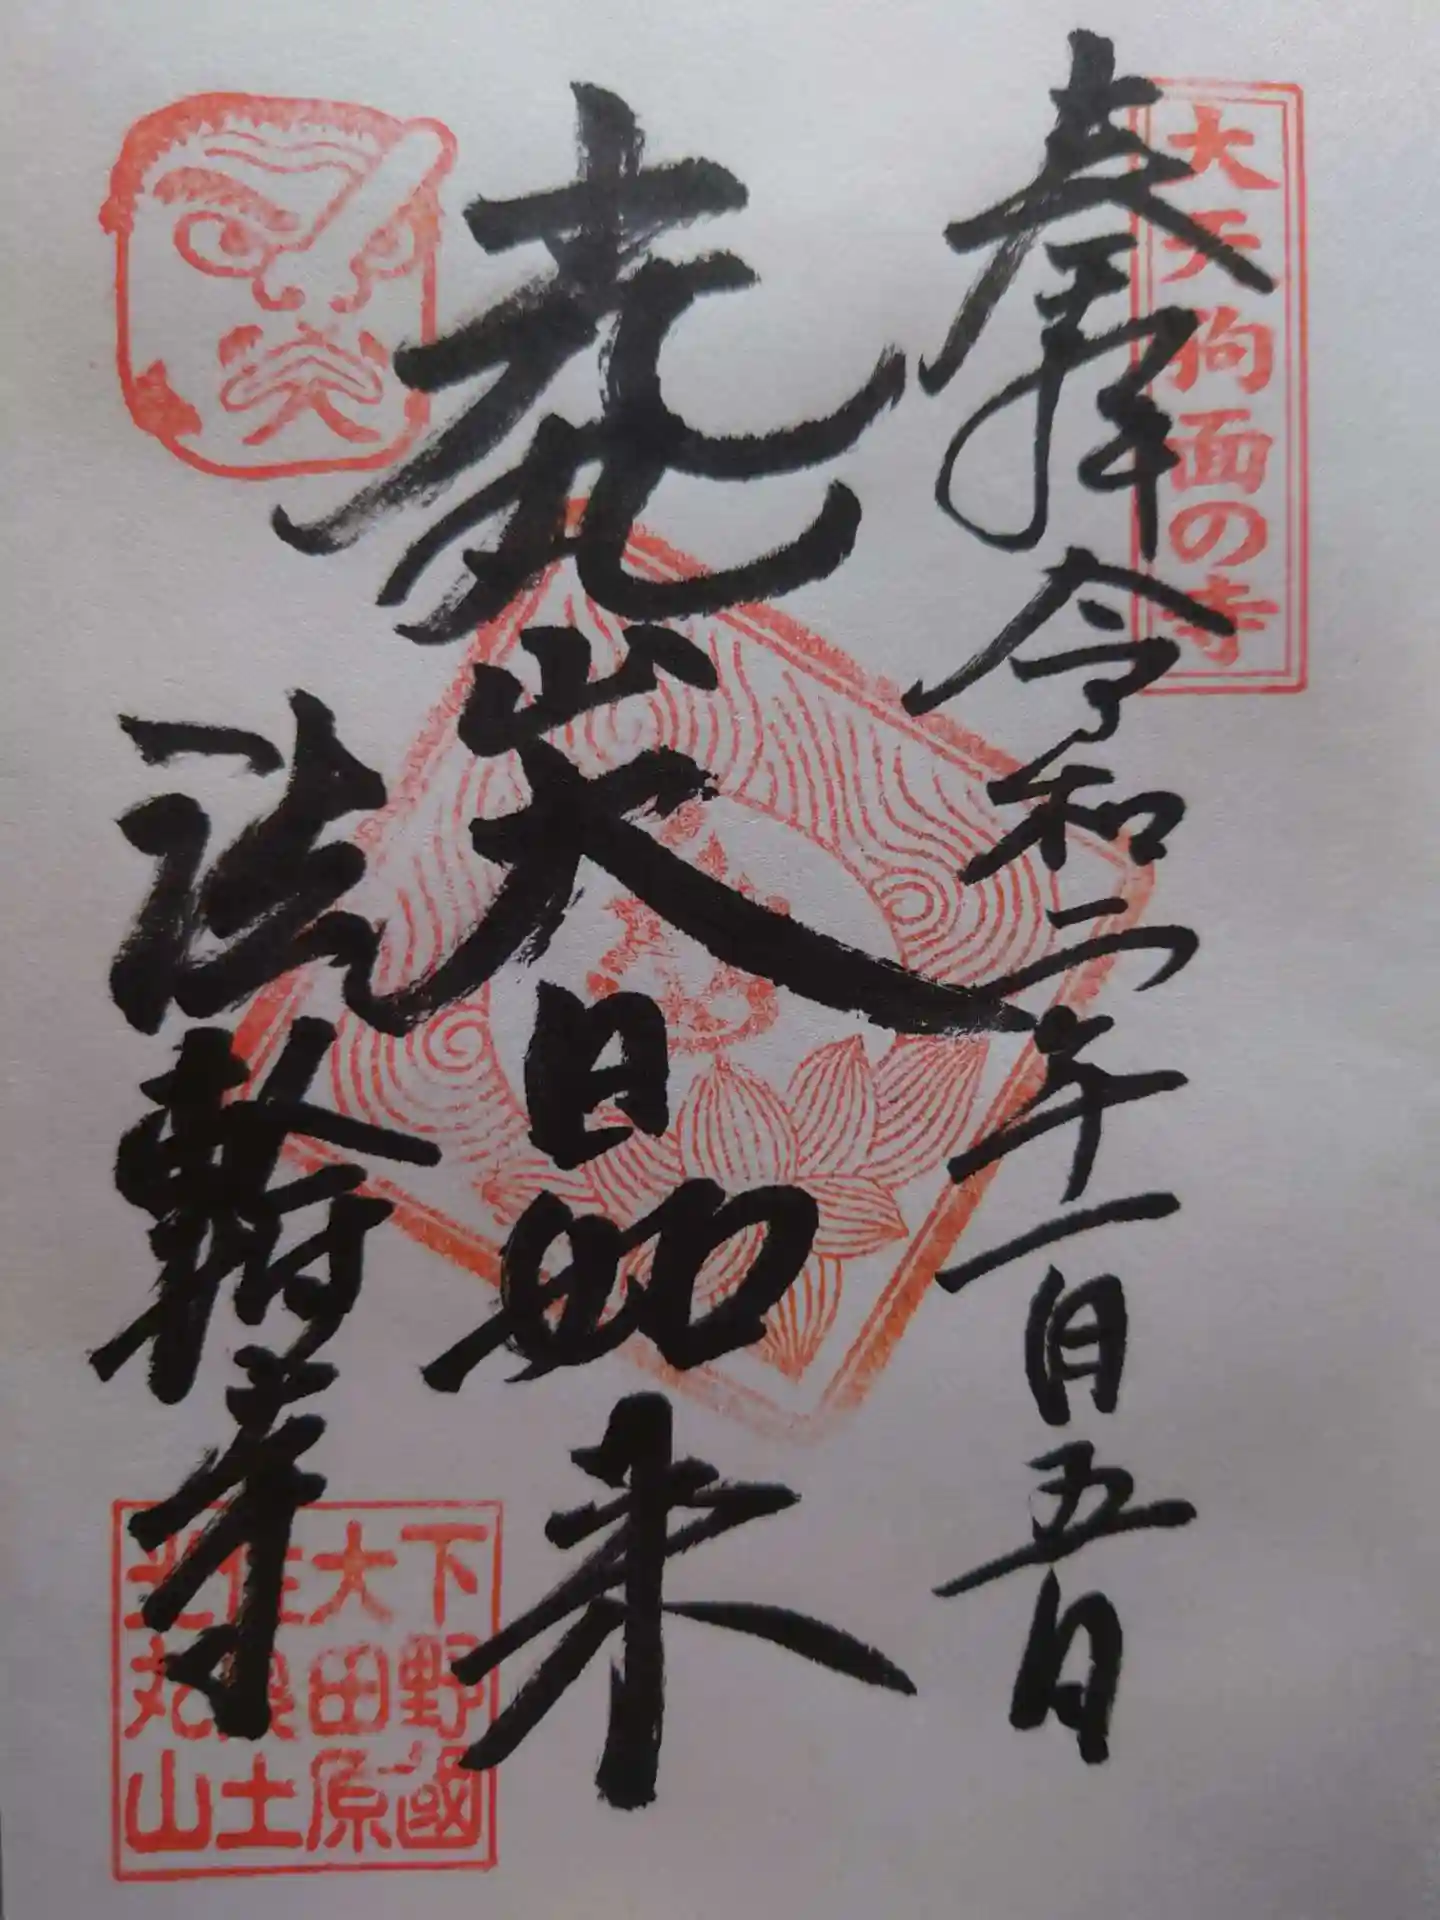 大天狗面の寺
奉拝 令和二年一月五日
光丸山 大日如来
法輪寺
下野國
大田原
佐良土
光丸山